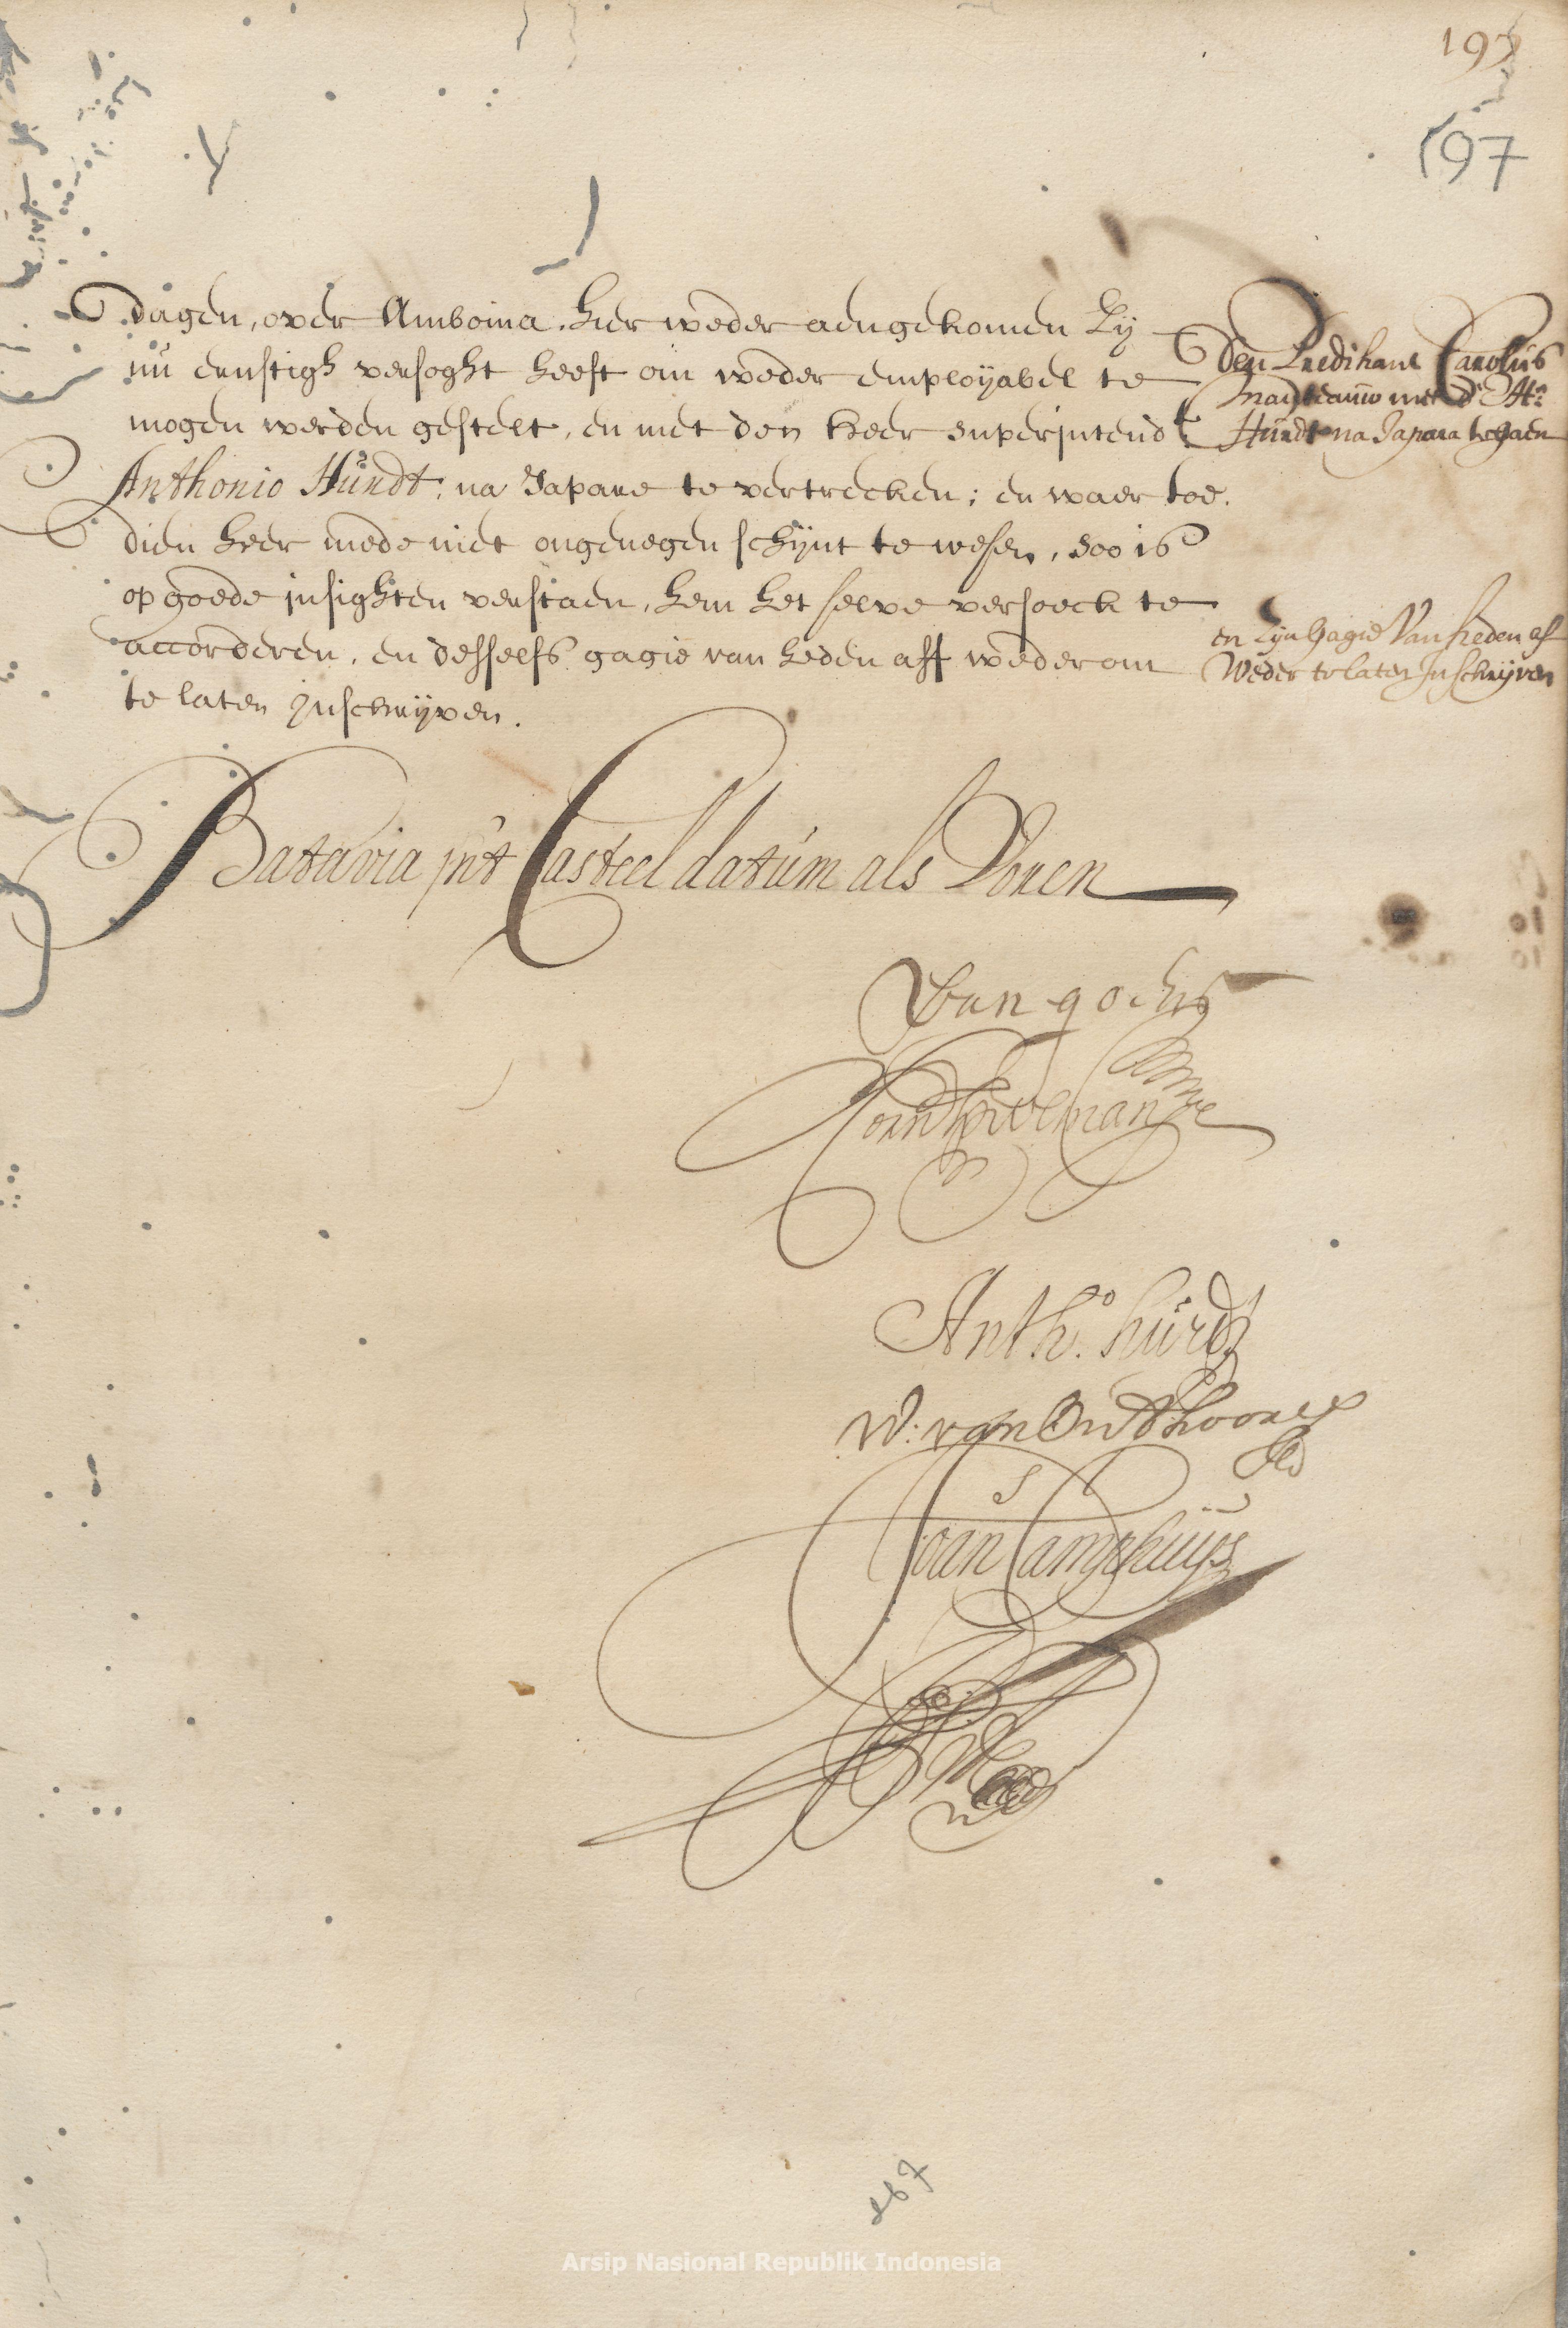 197
197
dagen, over Amboina, hier weder aengekomen zij
nu ernstigh versoght heeft om weder employabel te
mogen werden gestelt, en met den heer superintendt
Anthonio Hurdt, na Japare te vertrecken; en waer toe
dien heer mede niet ongenegen schijnt te wesen, soo is
op goede insighten verstaen, hem het selve versoeck te
accorderen, en desselfs gagie van heden aff wederom
te laten inschrijven.
Den Predikant Carolus
met d' Hr:
Hurdt na Japara te gaen
en zijn gagie van heden af
Weder te laten Inschrijven
Batavia in't Casteel datum als Voren
Van goens
Anth:o hurdt
W: van Outhoorn
Joan Camphuys
167
Arsip Nasional Republik Indonesia